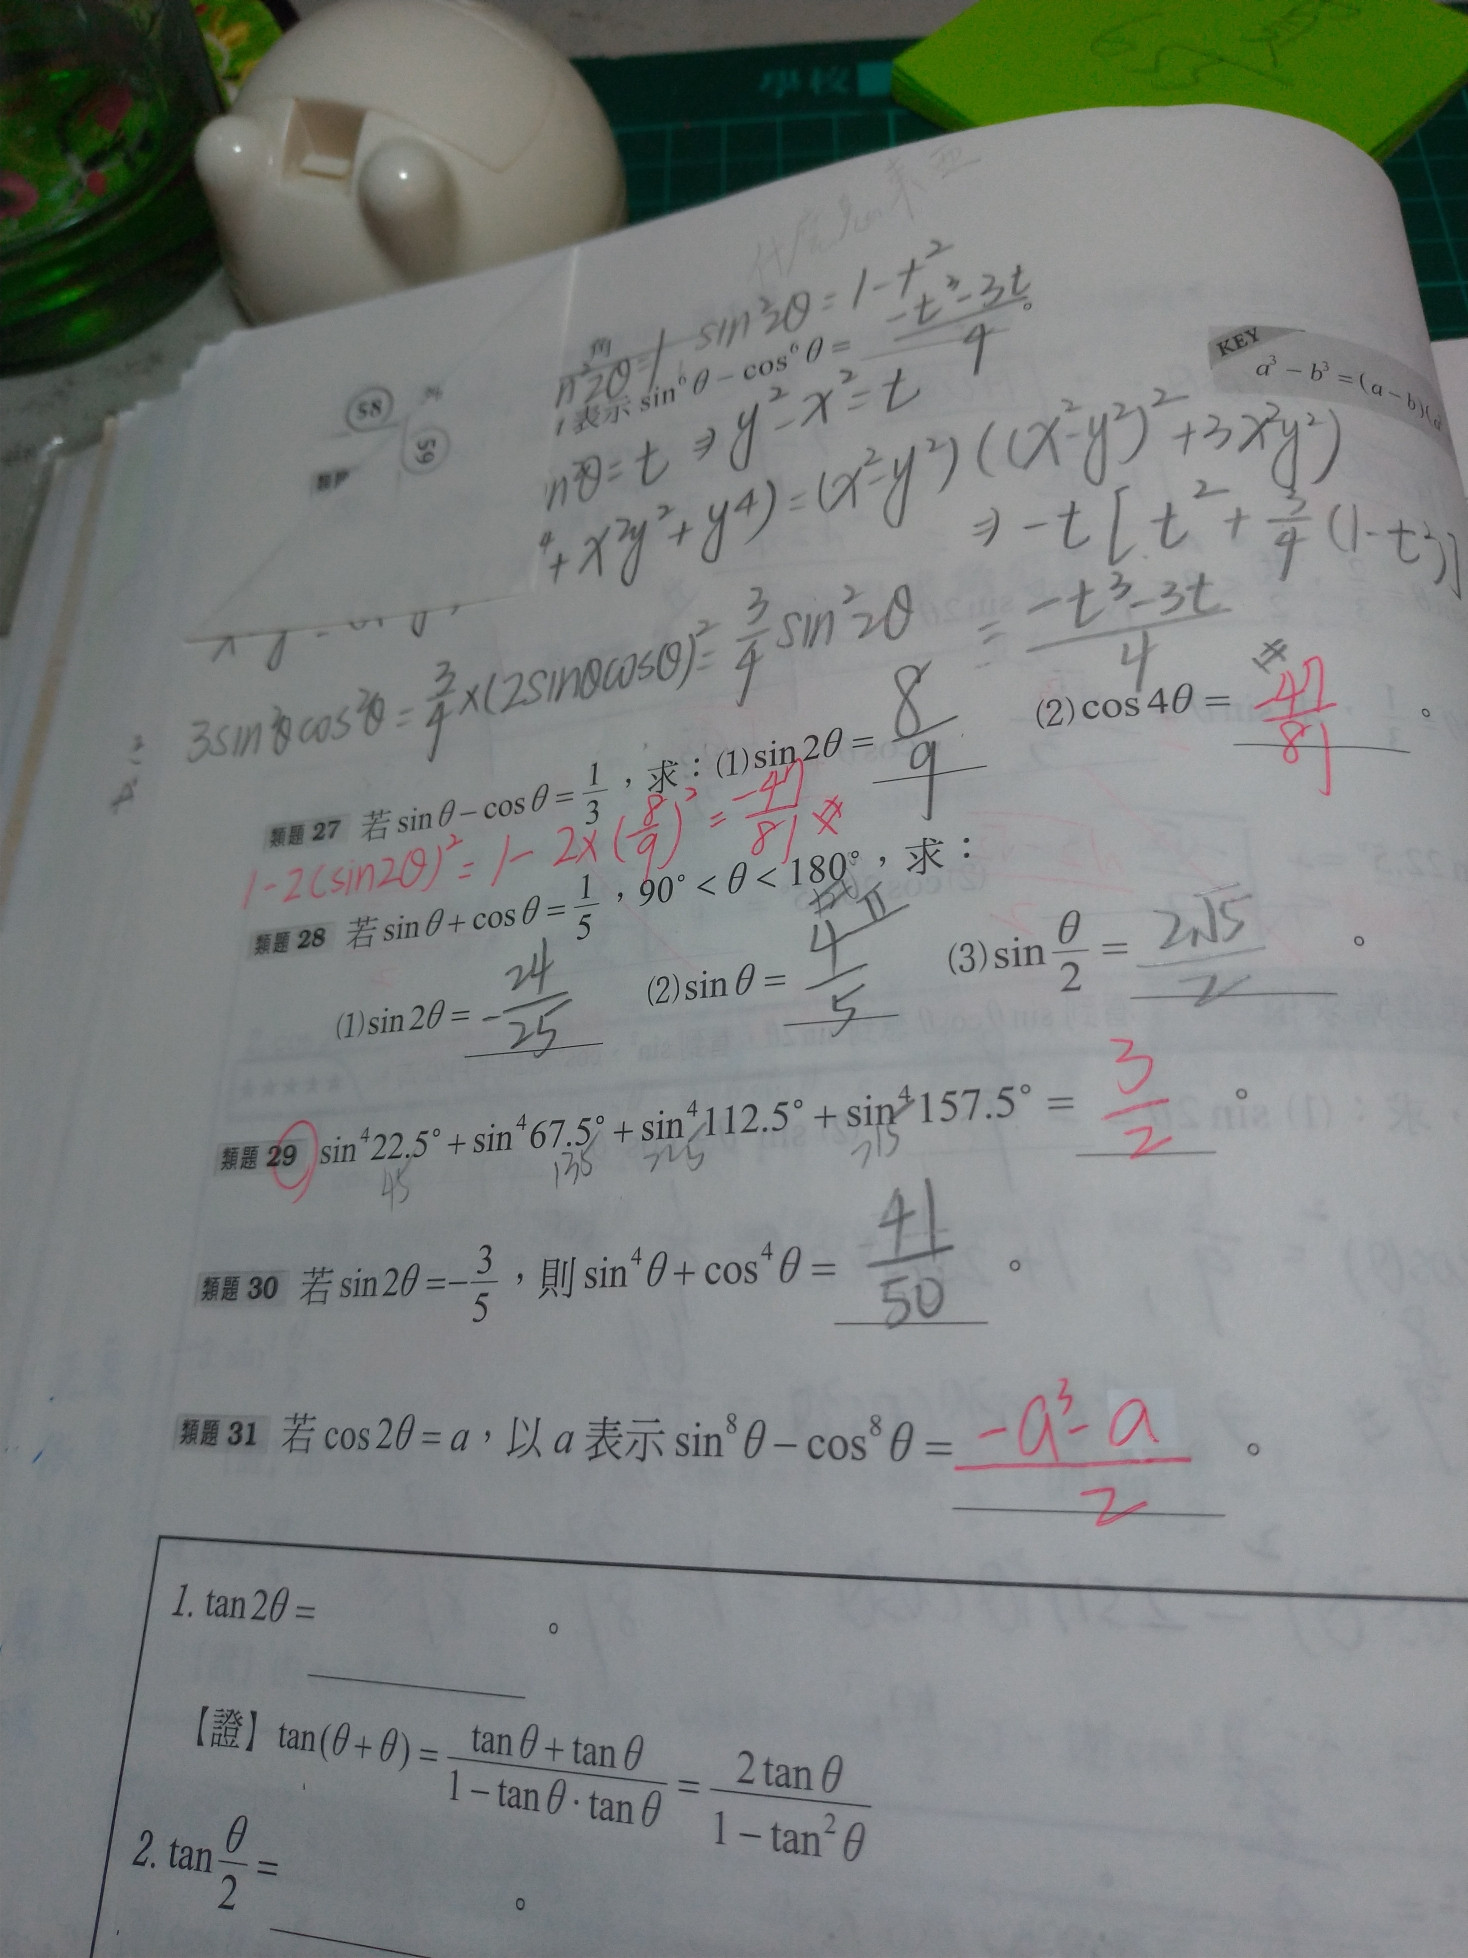 學校
什麼鬼東西
58
59
類題
sin²2θ = 1-t²
n²2θ=1
表示 sin⁶θ - cos⁶θ = (-t³-3t)/4 。
KEY
a³ - b³ = (a - b)(a
= t ⇒ y²-x² = t
⁴+x²y²+y⁴) = (x²-y²)((x²-y²)²+3x²y²)
⇒ -t[t²+3/4(1-t²)]
3sin²θcos²θ = 3/4×(2sinθcosθ)² = 3/4 sin²2θ
= (-t³-3t)/4
類題 27 若 sin θ - cos θ = 1/3 ,求:(1) sin 2θ = 8/9 (2) cos 4θ = -47/81 。
1-2(sin2θ)² = 1-2×(8/9)² = -47/81
類題 28 若 sin θ + cos θ = 1/5 ,90° < θ < 180°,求:
II
(1) sin 2θ = -24/25 (2) sin θ = 4/5 (3) sin θ/2 = 2√5/2 。
類題 29 sin⁴22.5° + sin⁴67.5° + sin⁴112.5° + sin⁴157.5° = 3/2 。
45 135 225 315
類題 30 若 sin 2θ = -3/5 ,則 sin⁴θ + cos⁴θ = 41/50 。
類題 31 若 cos 2θ = a,以 a 表示 sin⁸θ - cos⁸θ = (-a³-a)/2 。
1. tan 2θ = 。
【證】tan(θ+θ) = (tan θ + tan θ)/(1 - tan θ · tan θ) = 2 tan θ/(1 - tan²θ)
2. tan θ/2 = 。